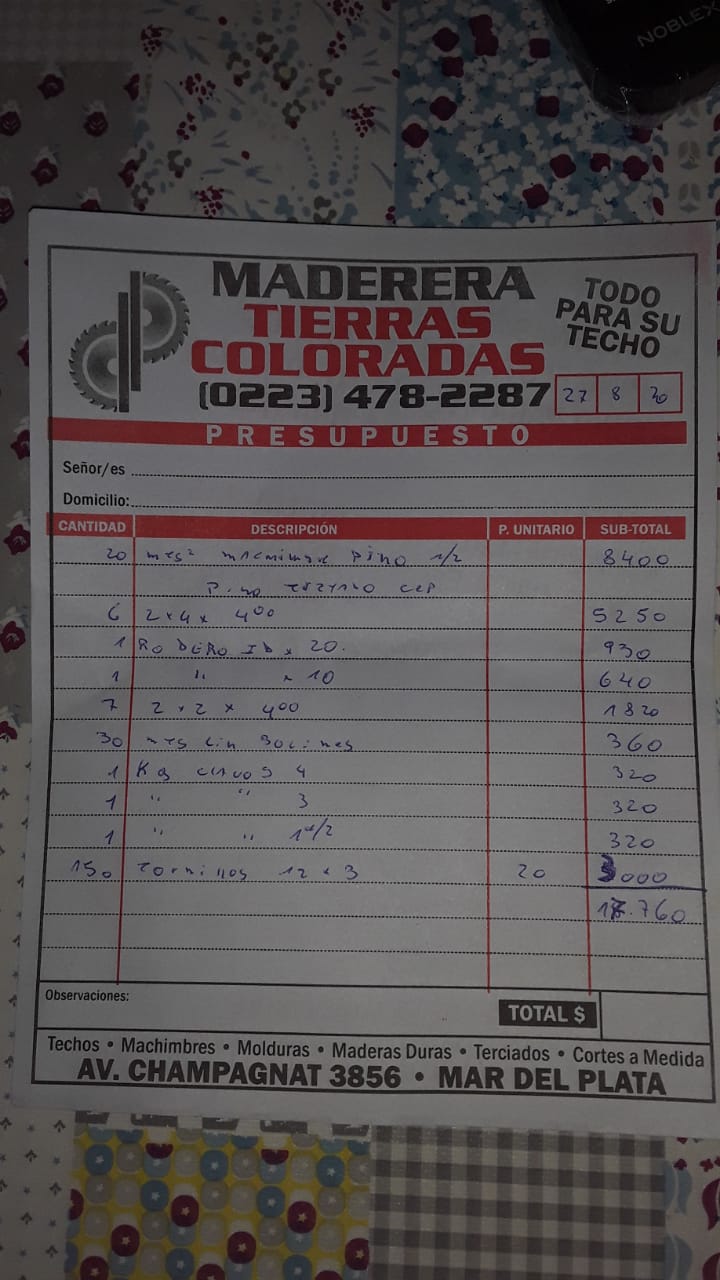 NOBLEX
MADERERA
TIERRAS
COLORADAS
TODO
PARA SU
TECHO
(0223) 478-2287 27 8 20
PRESUPUESTO
Señor/es
Domicilio:
CANTIDAD DESCRIPCIÓN P. UNITARIO SUB-TOTAL
20 mts² machimbre pino 1/2 8400
Pino
6 2x4x 400 5250
1 20. 930
1 " x 10 640
7 2x2x 400 1820
30 mts 360
1 Kg clavos 4 320
1 " " 3 320
1 " " 1 1/2 320
150 Tornillos 12 x 3 20 3000
760
Observaciones:
TOTAL $
Techos • Machimbres • Molduras • Maderas Duras • Terciados • Cortes a Medida
AV. CHAMPAGNAT 3856 • MAR DEL PLATA